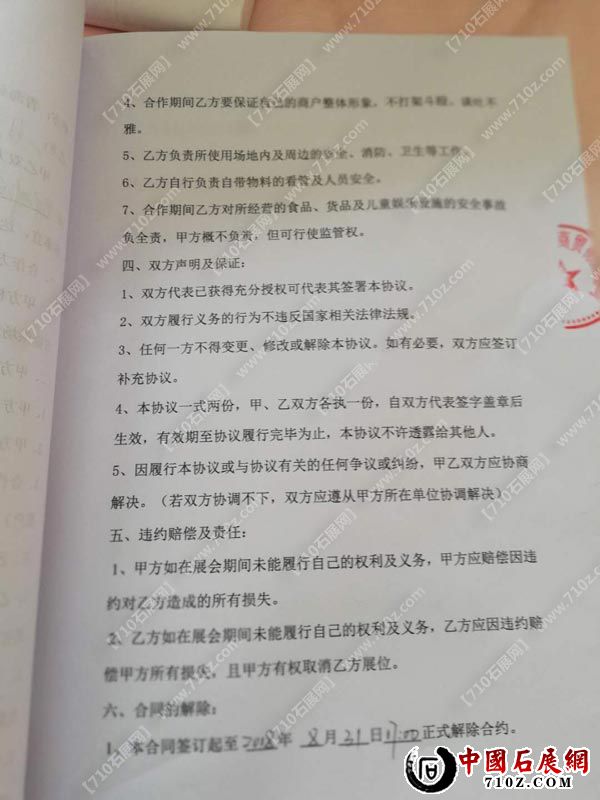 4、合作期间乙方要保证自己的商户整体形象，不打架斗殴，谈吐不
雅。
5、乙方负责所使用场地内及周边的安全、消防、卫生等工作
6、乙方自行负责自带物料的看管及人员安全。
7、合作期间乙方对所经营的食品、货品及儿童娱乐设施的安全事故
负全责，甲方概不负责，但可行使监管权。
四、双方声明及保证：
1、双方代表已获得充分授权可代表其签署本协议。
2、双方履行义务的行为不违反国家相关法律法规。
3、任何一方不得变更、修改或解除本协议。如有必要，双方应签订
补充协议。
4、本协议一式两份，甲、乙双方各执一份，自双方代表签字盖章后
生效，有效期至协议履行完毕为止，本协议不许透露给其他人。
5、因履行本协议或与协议有关的任何争议或纠纷，甲乙双方应协商
解决。（若双方协调不下，双方应遵从甲方所在单位协调解决）
五、违约赔偿及责任：
1、甲方如在展会期间未能履行自己的权利及义务，甲方应赔偿因违
约对乙方造成的所有损失。
2、乙方如在展会期间未能履行自己的权利及义务，乙方应因违约赔
偿甲方所有损失，且甲方有权取消乙方展位。
六、合同的解除：
1、本合同签订起至2018年 8月21日17:00正式解除合约。
商贸
【710石展网】 www.710z.com
中國石展網
710Z.COM